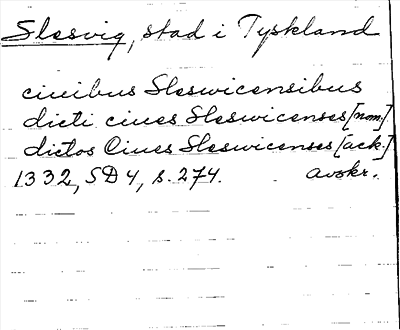 Slesvig, stad i Tyskland
ciuibus Sleswicensibus
dicti ciues Sleswicenses [nom.]
dictos Ciues Sleswicenses [ack.]
1332, SD 4, s. 274. avskr.